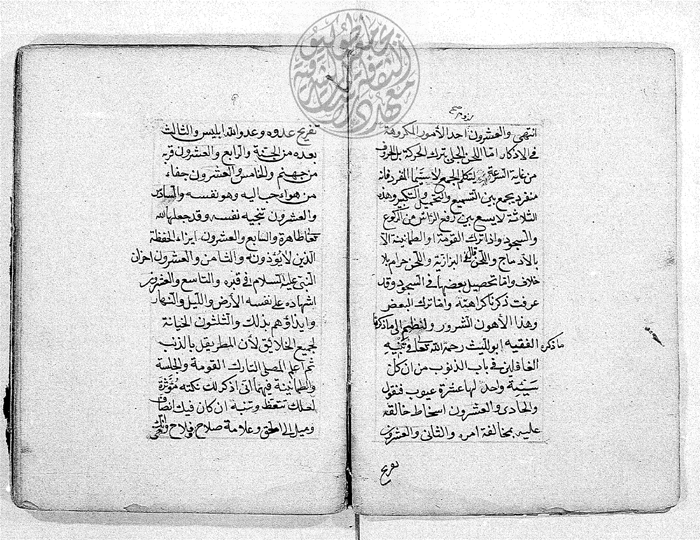 انتهى والعشرون احد الأمور المكروهة
في الاذكار امّا اللحن الجلي بترك الحركة بل الحرف
من غاية السرعة
منفردة يجمع بين التسميع والتحميد والتكبير وهذه
الثلاثة لا يسع بين رفع الرأس من الركوع
والسجود واذا ترك القومة او الطمانينة الّا
بالادماج واللحن قال في البزازية واللحن حرام بلا
خلاف وامّا تحصيل بعضها في السجود وقد
عرفت ذكرنا كراهته وامّا ترك البعض
وهذا الأهون الشرور ولنظم الى ما ذكرنا
ما ذكره الفقيه ابو الليث رحمة الله تعالى في تنبيه
الغافلين في باب الذنوب من ان كل
سيئة واحد لها عشرة عيوب فنقول
والحادى والعشرون اسخاط خالقه
عليه بمخالفة امره والثانى والعشرون
تفريح
تفريح عدوه وعدو الله ابليس والثالث
بعده من الجنة والرابع والعشرون قربه
من جهنم والخامس والعشرون جفاء
من هو احب اليه وهو نفسه والسادس
والعشرون تنجيه نفسه وقد جعلها الله
تعا طاهرة والسابع والعشرون ايذاء الحفظة
الذين لا يؤذونه والثامن والعشرون احزان
النبى عليه السلام في قبره والتاسع والعشرون
اشهاده على نفسه الأرض والليل والنهار
وايذاؤهم بذلك والثلثون الخيانة
لجميع الخلائق لأن المطر يقل بالذنب
ثم اعلم المصلى التارك القومة والجلسة
والطمانينة فيهما انى اذكر لك نكتة مؤثرة
لعلك تتعظ وتنبه ان كان فيك انصاف
وميل الى الحق وعلامة صلاح وفلاح